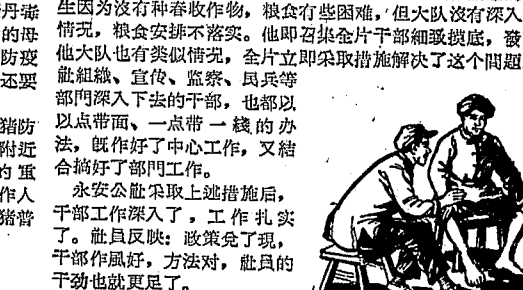 丹毒
的母
防疫
还要
猪防
附近
的重
作人
猪普
生因为没有种春收作物，粮食有些困难，但大队沒有深入
情况，粮食安排不落实。他即召集全片干部細致摸底，發
他大队也有类似情况，全片立即采取措施解决了这个問題
社組織、宣传、监察、民兵等
部門深入下去的干部，也都以
以点带面、一点带一綫的办
法，既作好了中心工作，又結
合搞好了部門工作。
永安公社采取上述措施后，
干部工作深入了，工作扎实
了。社員反映：政策兌了現，
干部作風好，方法对，社員的
干劲也就更足了。